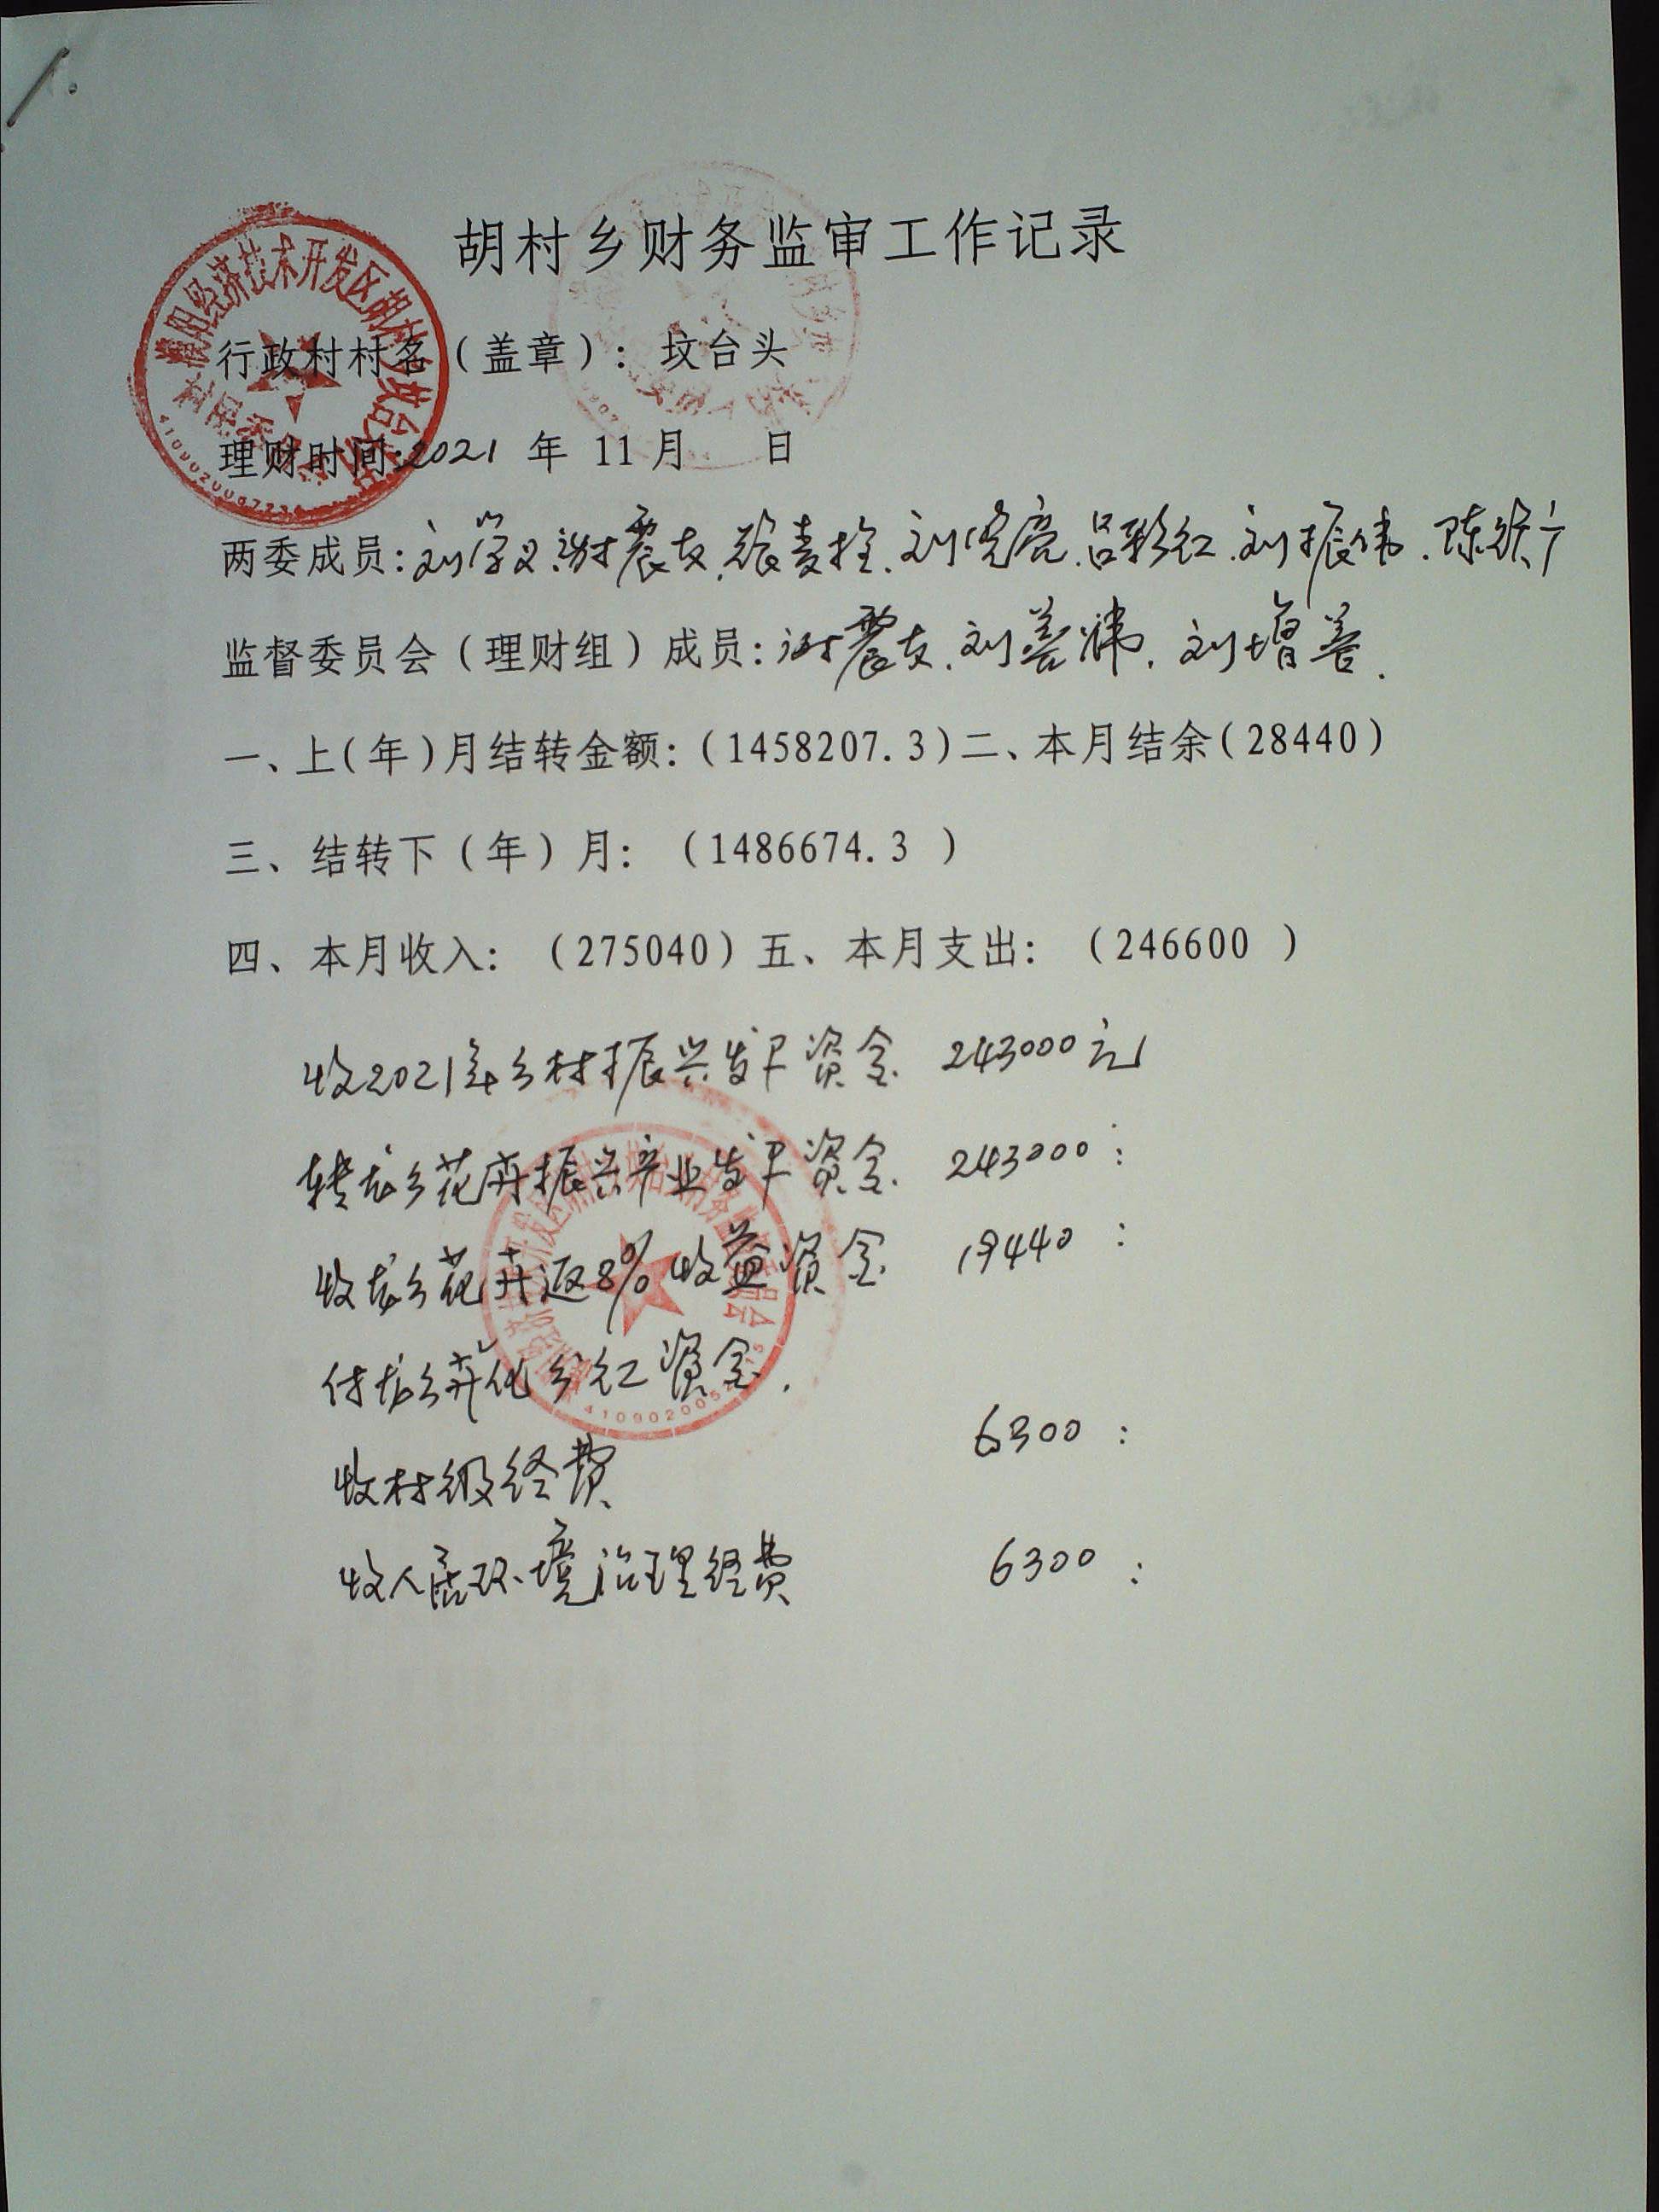 胡村乡财务监审工作记录
行政村村名（盖章）：坟台头
理财时间:2021 年 11月 日
两委成员:刘学义.谢震友.张麦拴.刘党亮.吕彩红.刘振伟.陈
监督委员会（理财组）成员:谢震友.刘善伟.刘增善.
一、上(年)月结转金额:(1458207.3)二、本月结余(28440)
三、结转下（年）月：（1486674.3 ）
四、本月收入：（275040）五、本月支出：（246600 ）
收2021年乡村振兴发展资金 243000元
转龙乡花卉振兴产业发展资金 243000:
收龙乡花卉返8%收益资金 19440 :
付龙乡卉化分红资金.
收村级经费 6300 :
收人居环境治理经费 6300 :